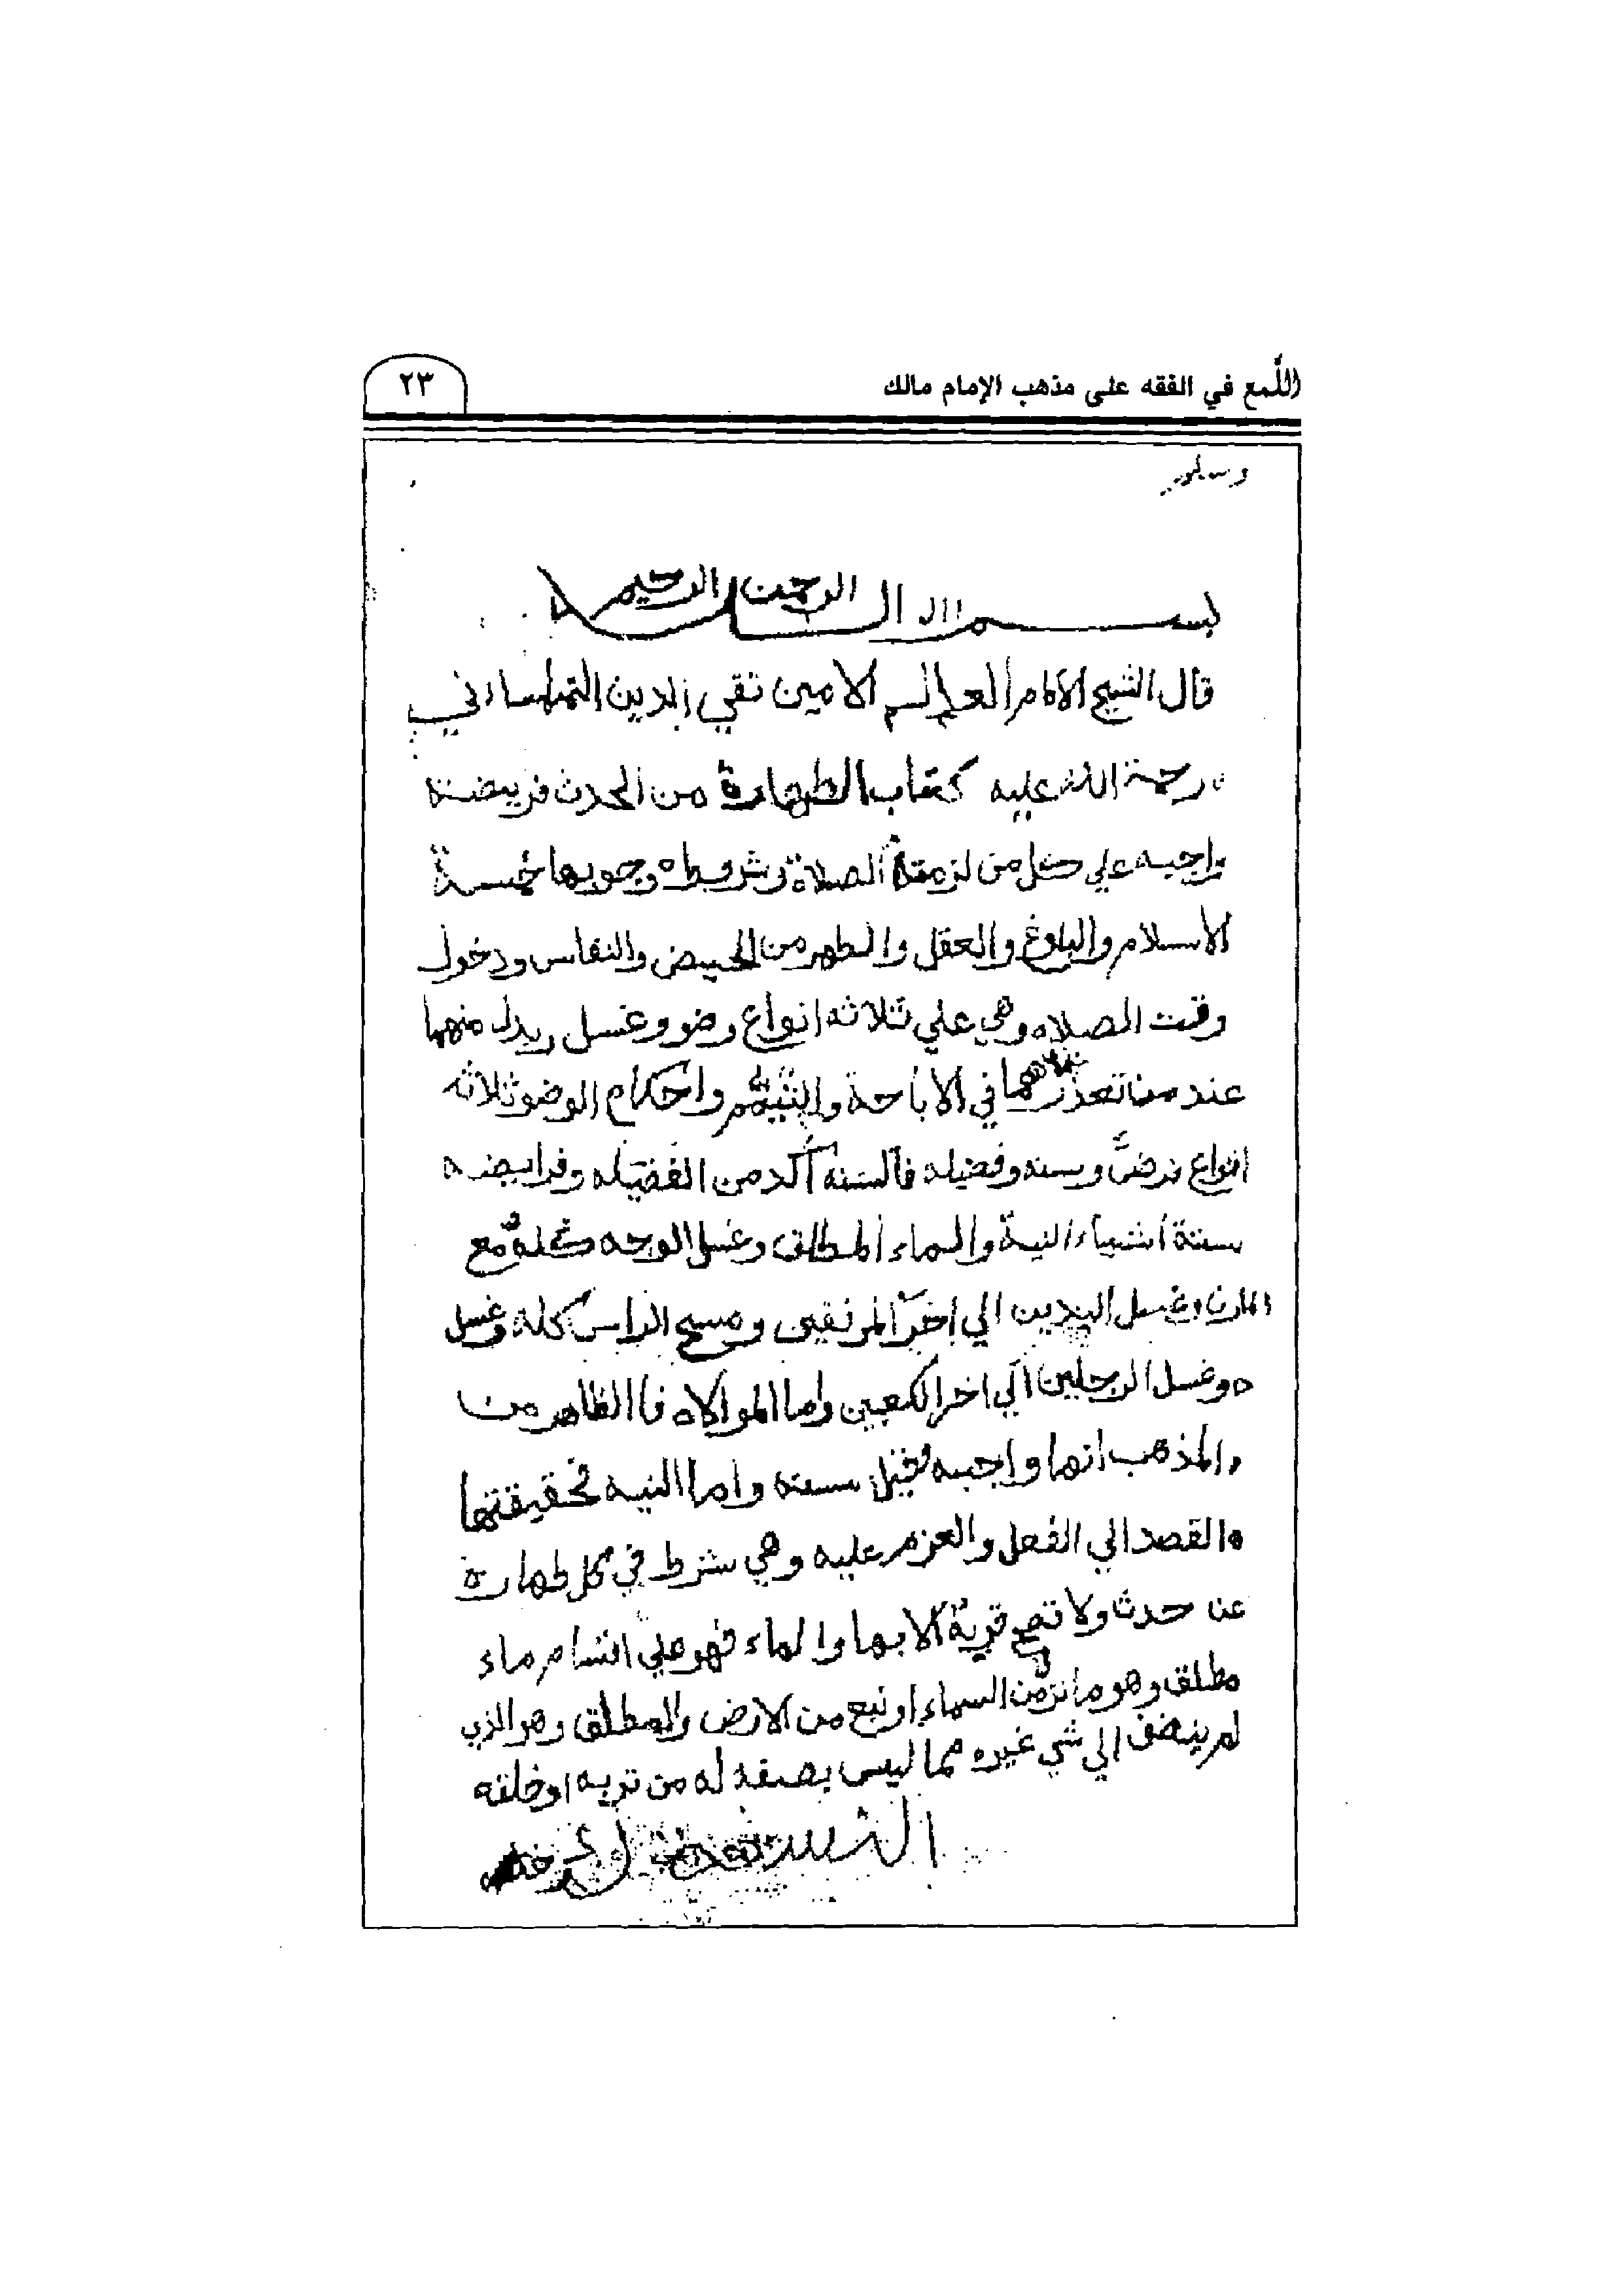 اللُّمع في الفقه على مذهب الإمام مالك
٢٣
وسلم
بسم الله الرحمن الرحيم
قال الشيخ الامام العالم الامين تقي الدين التلمساني
رحمة الله عليه كتاب الطهارة من الحدث فريضة
واجبه علي كل من لزمته الصلاة وشروط وجوبها خمسة
الاسلام والبلوغ والعقل والطهر من الحيض والنفاس ودخول
وقت الصلاه وهي علي ثلاثه انواع وضو وغسل وبدل منهما
عند تعذرهما في الاباحة والتيمم واحكام الوضو ثلاثه
انواع فرض وسنه وفضيله فالسنه آكد من الفضيله وفرايضه
ستة أشياء النية والماء المطلق وغسل الوجه كله مع
المارن وغسل اليدين الي اخر المرفقين ومسح الراس كله وغسل
وغسل الرجلين الي اخر الكعبين واما الموالاه فاالظاهر من
المذهب انها واجبه وقيل سنته واما النيه فحقيقتها
القصد الي الفعل والعزم عليه وهي شرط في كل طهارة
عن حدث ولا تصح قربة الا بها والماء فهو علي اقسام ماء
مطلق وهو ما نزل من السماء او نبع من الارض والمطلق وهو الذي
لم ينضف الي شي غيره مما ليس بصفه له من تربه او خلقته